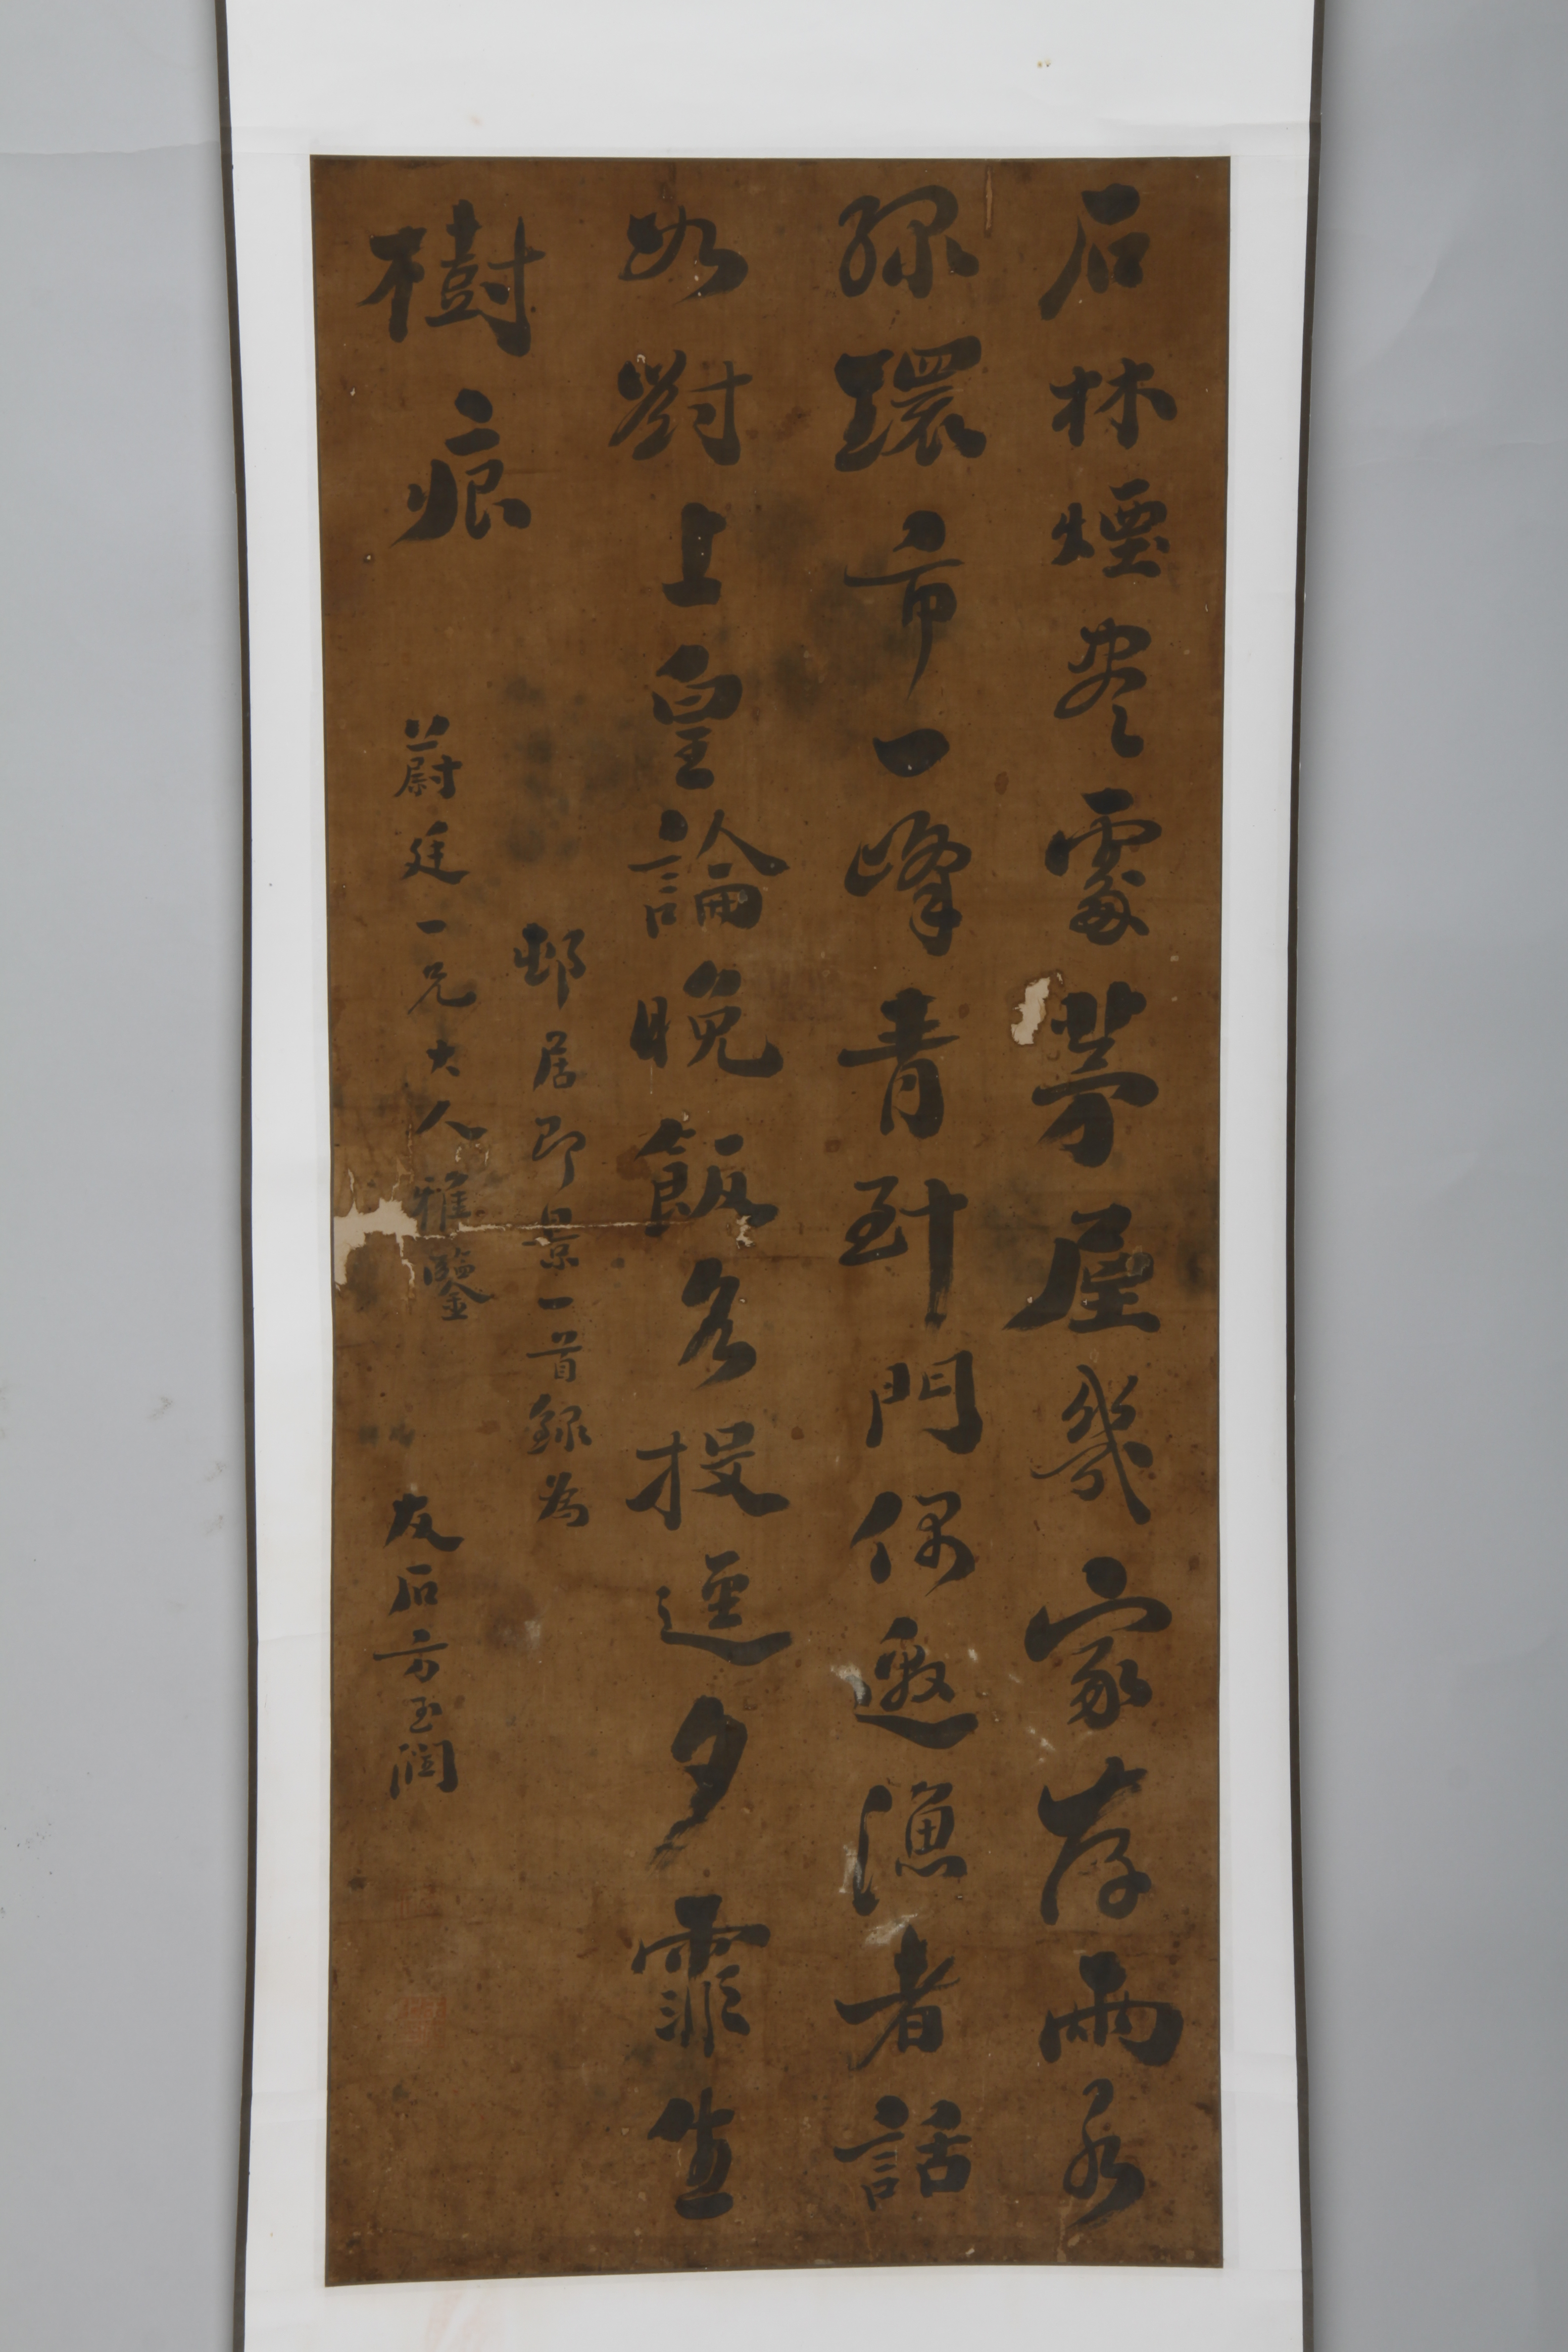 石林煙尽處茅屋幾家存兩水
綠環市一峰青到門偶邀漁者話
如對上皇論晚飯各投逕夕霏生
樹痕
邨居即景一首錄為
蔚廷一兄大人雅鑒 友石方玉潤